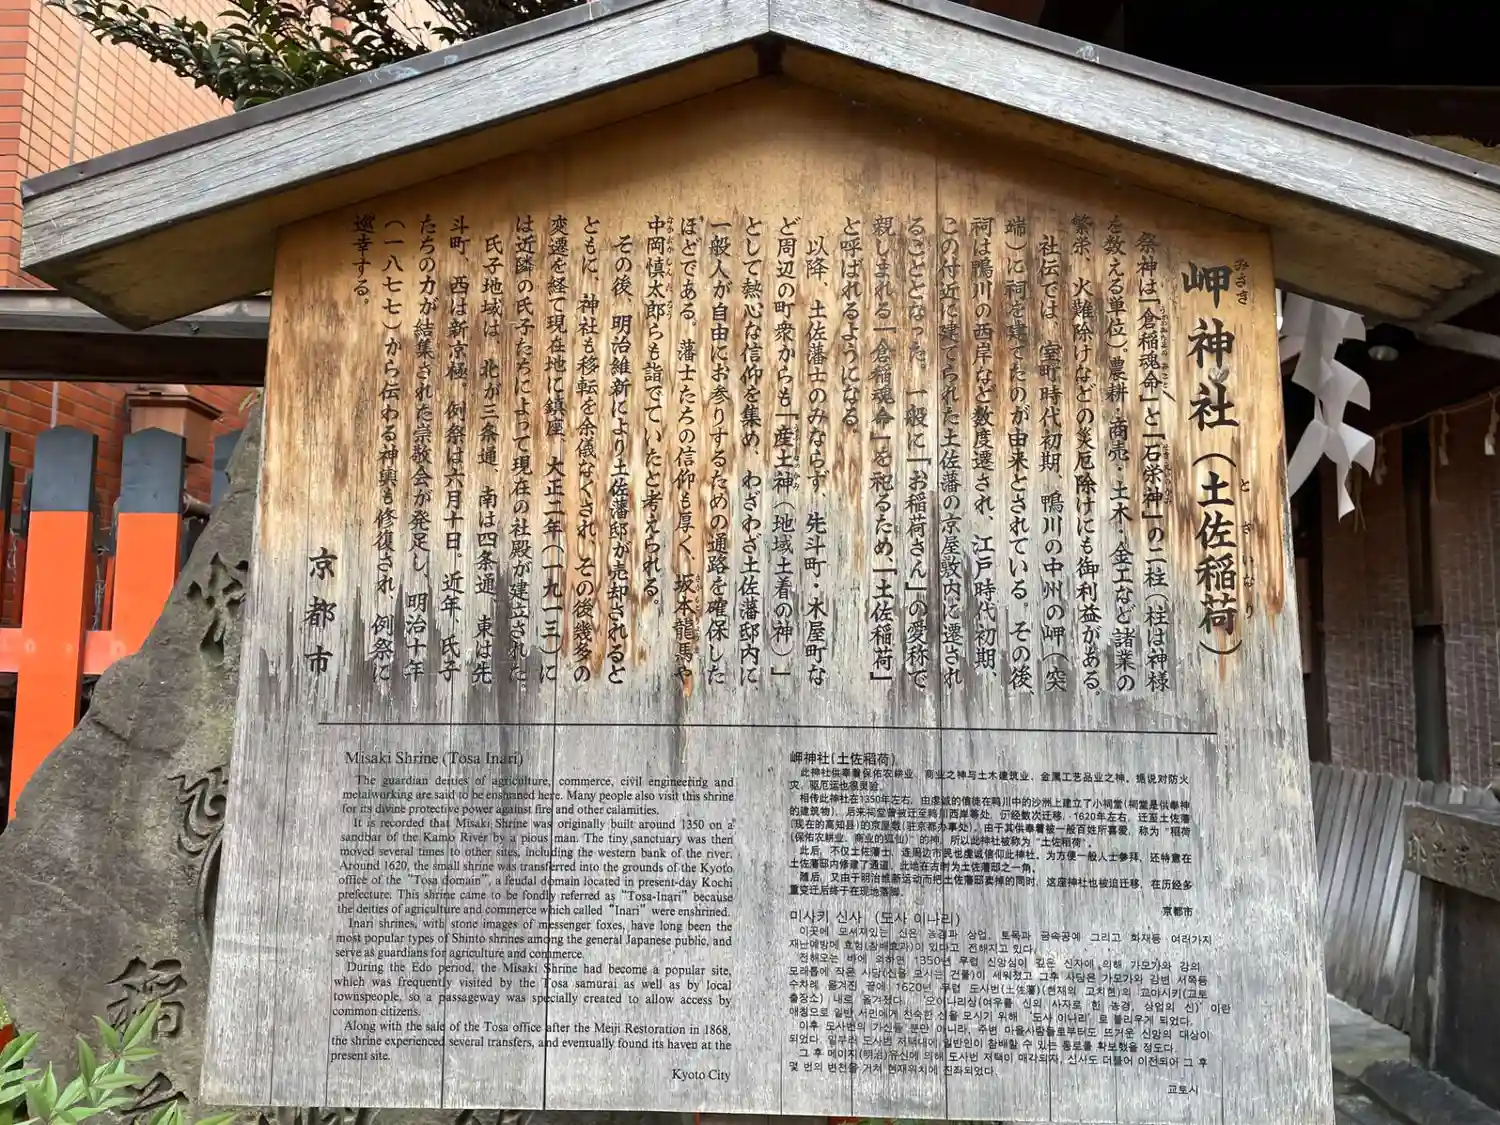 岬神社（土佐稲荷）
みさき
とさいなり
祭神は「倉稲魂命」と「石栄神」の二柱（柱は神様
を数える単位）。農耕・商売・土木・金工など諸業の
繁栄、火難除けなどの災厄除けにも御利益がある。
社伝では、室町時代初期、鴨川の中州の岬（突
端）に祠を建てたのが由来とされている。その後、
祠は鴨川の西岸など数度遷され、江戸時代初期、
この付近に建てられた土佐藩の京屋敷内に遷され
ることとなった。一般に「お稲荷さん」の愛称で
親しまれる「倉稲魂命」を祀るため「土佐稲荷」
と呼ばれるようになる。
以降、土佐藩士のみならず、先斗町・木屋町な
ど周辺の町衆からも「産土神（地域土着の神）」
として熱心な信仰を集め、わざわざ土佐藩邸内に、
一般人が自由にお参りするための通路を確保した
ほどである。藩士たちの信仰も厚く、坂本龍馬や
中岡慎太郎らも詣でていたと考えられる。
その後、明治維新により土佐藩邸が売却されると
ともに、神社も移転を余儀なくされ、その後幾多の
変遷を経て現在地に鎮座、大正二年（一九一三）に
は近隣の氏子たちによって現在の社殿が建立された。
氏子地域は、北が三条通、南は四条通、東は先
斗町、西は新京極。例祭は六月十日。近年、氏子
たちの力が結集された崇敬会が発足し、明治十年
（一八七七）から伝わる神輿も修復され、例祭に
巡幸する。
京都市
Misaki Shrine (Tosa Inari)
The guardian deities of agriculture, commerce, civil engineering and
metalworking are said to be enshrined here. Many people also visit this shrine
for its divine protective power against fire and other calamities.
It is recorded that Misaki Shrine was originally built around 1350 on a
sandbar of the Kamo River by a pious man. The tiny sanctuary was then
moved several times to other sites, including the western bank of the river.
Around 1620, the small shrine was transferred into the grounds of the Kyoto
office of the "Tosa domain", a feudal domain located in present-day Kochi
prefecture. This shrine came to be fondly referred as "Tosa-Inari" because
the deities of agriculture and commerce which called "Inari" were enshrined.
Inari shrines, with stone images of messenger foxes, have long been the
most popular types of Shinto shrines among the general Japanese public, and
serve as guardians for agriculture and commerce.
During the Edo period, the Misaki Shrine had become a popular site,
which was frequently visited by the Tosa samurai as well as by local
townspeople, so a passageway was specially created to allow access by
common citizens.
Along with the sale of the Tosa office after the Meiji Restoration in 1868,
the shrine experienced several transfers, and eventually found its haven at the
present site.
Kyoto City
岬神社(土佐稻荷)
此神社供奉着保佑农耕业、商业之神与土木建筑业、金属工艺品业之神。据说对防火
灾、驱厄运也很灵验。
相传此神社在1350年左右，由虔诚的信徒在鸭川中的沙洲上建立了小祠堂(祠堂是供奉神
的建筑物)，后来祠堂曾被迁至鸭川西岸等处，历经数次迁移，1620年左右，迁至土佐藩
(现在的高知县)的京屋敷(驻京都办事处)。由于其供奉着被一般百姓所喜爱，称为"稻荷
(保佑农耕业、商业的狐仙)"的神，所以此神社被称为"土佐稻荷"。
此后，不仅土佐藩士，连周边市民也虔诚信仰此神社。为方便一般人士参拜，还特意在
土佐藩邸内修建了通道，此地在古时为土佐藩邸之一角。
随后，又由于明治维新运动而把土佐藩邸卖掉的同时，这座神社也被迫迁移，在历经多
重变迁后终于在现地落脚。
京都市
미사키 신사 (도사 이나리)
이곳에 모셔져있는 신은 농경과 상업, 토목과 금속공예 그리고 화재등 여러가지
재난예방에 효험(참배효과)이 있다고 전해지고 있다.
전해오는 바에 의하면 1350년 무렵 신앙심이 깊은 신자에 의해 가모가와 강의
모래톱에 작은 사당(신을 모시는 건물)이 세워졌고 그후 사당은 가모가와 강변 서쪽등
수차례 옮겨진 끝에 1620년 무렵 도사번(土佐藩)(현재의 고치현)의 교야시키(교토
출장소) 내로 옮겨졌다. '오이나리상(여우를 신의 사자로 한 농경, 상업의 신)' 이란
애칭으로 일반 서민에게 친숙한 신을 모시기 위해 '도사 이나리' 로 불리우게 되었다.
이후 도사번의 가신들 뿐만 아니라, 주변 마을사람들로부터도 뜨거운 신앙의 대상이
되었다. 일부러 도사번 저택내에 일반인이 참배할 수 있는 통로를 확보했을 정도다.
그 후 메이지(明治)유신에 의해 도사번 저택이 매각되자, 신사도 더불어 이전되어 그 후
몇 번의 변천을 거쳐 현재위치에 진좌되었다.
교토시